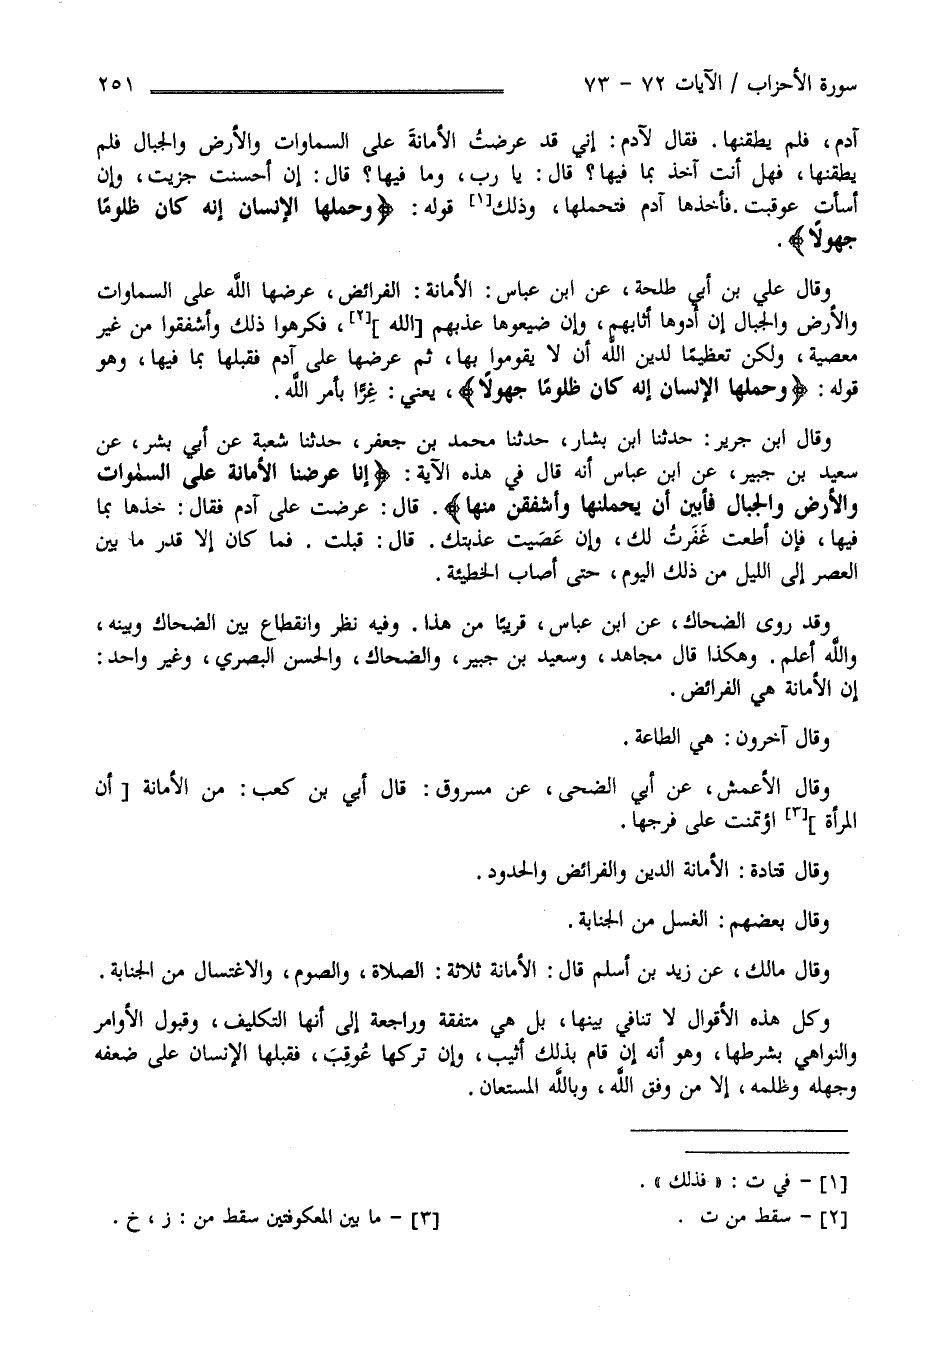 سورة الأحزاب / الآيات ٧٢ - ٧٣ ٢٥١
آدم ، فلم يطقنها . فقال لآدم : إني قد عرضتُ الأمانةَ على السماوات والأرض والجبال فلم
يطقنها ، فهل أنت آخذ بما فيها ؟ قال : يا رب ، وما فيها ؟ قال : إن أحسنت جزيت ، وإن
أسأت عوقبت .فأخذها آدم فتحملها ، وذلك[١] قوله : ﴿ وحملها الإنسان إنه كان ظلومًا
جهولًا ﴾ .
وقال علي بن أبي طلحة ، عن ابن عباس : الأمانة : الفرائض ، عرضها اللَّه على السماوات
والأرض والجبال إن أدوها أثابهم ، وإن ضيعوها عذبهم [الله ][٢] ، فكرهوا ذلك وأشفقوا من غير
معصية ، ولكن تعظيمًا لدين اللَّه أن لا يقوموا بها ، ثم عرضها على آدم فقبلها بما فيها ، وهو
قوله : ﴿ وحملها الإنسان إنه كان ظلومًا جهولًا ﴾ ، يعني : غِرًّا بأمر اللَّه .
وقال ابن جرير : حدثنا ابن بشار ، حدثنا محمد بن جعفر ، حدثنا شعبة عن أبي بشر ، عن
سعيد بن جبير ، عن ابن عباس أنه قال في هذه الآية : ﴿ إنا عرضنا الأمانة على السمٰوات
والأرض والجبال فأبين أن يحملنها وأشفقن منها ﴾ . قال : عرضت على آدم فقال : خذها بما
فيها ، فإن أطعت غَفَرتُ لك ، وإن عَصَيت عذبتك . قال : قبلت . فما كان إلا قدر ما بين
العصر إلى الليل من ذلك اليوم ، حتى أصاب الخطيئة .
وقد روى الضحاك ، عن ابن عباس ، قريبًا من هذا . وفيه نظر وانقطاع بين الضحاك وبينه ،
واللَّه أعلم . وهكذا قال مجاهد ، وسعيد بن جبير ، والضحاك ، والحسن البصري ، وغير واحد :
إن الأمانة هي الفرائض .
وقال آخرون : هي الطاعة .
وقال الأعمش ، عن أبي الضحى ، عن مسروق : قال أبي بن كعب : من الأمانة [ أن
المرأة ][٣] اؤتمنت على فرجها .
وقال قتادة : الأمانة الدين والفرائض والحدود .
وقال بعضهم : الغسل من الجنابة .
وقال مالك ، عن زيد بن أسلم قال : الأمانة ثلاثة : الصلاة ، والصوم ، والاغتسال من الجنابة .
وكل هذه الأقوال لا تنافي بينها ، بل هي متفقة وراجعة إلى أنها التكليف ، وقبول الأوامر
والنواهي بشرطها ، وهو أنه إن قام بذلك أثيب ، وإن تركها عُوقِبَ ، فقبلها الإنسان على ضعفه
وجهله وظلمه ، إلا من وفق اللَّه ، وباللَّه المستعان .
[١] - في ت : « فذلك » .
[٢] - سقط من ت . [٣] - ما بين المعكوفتين سقط من : ز ، خ .